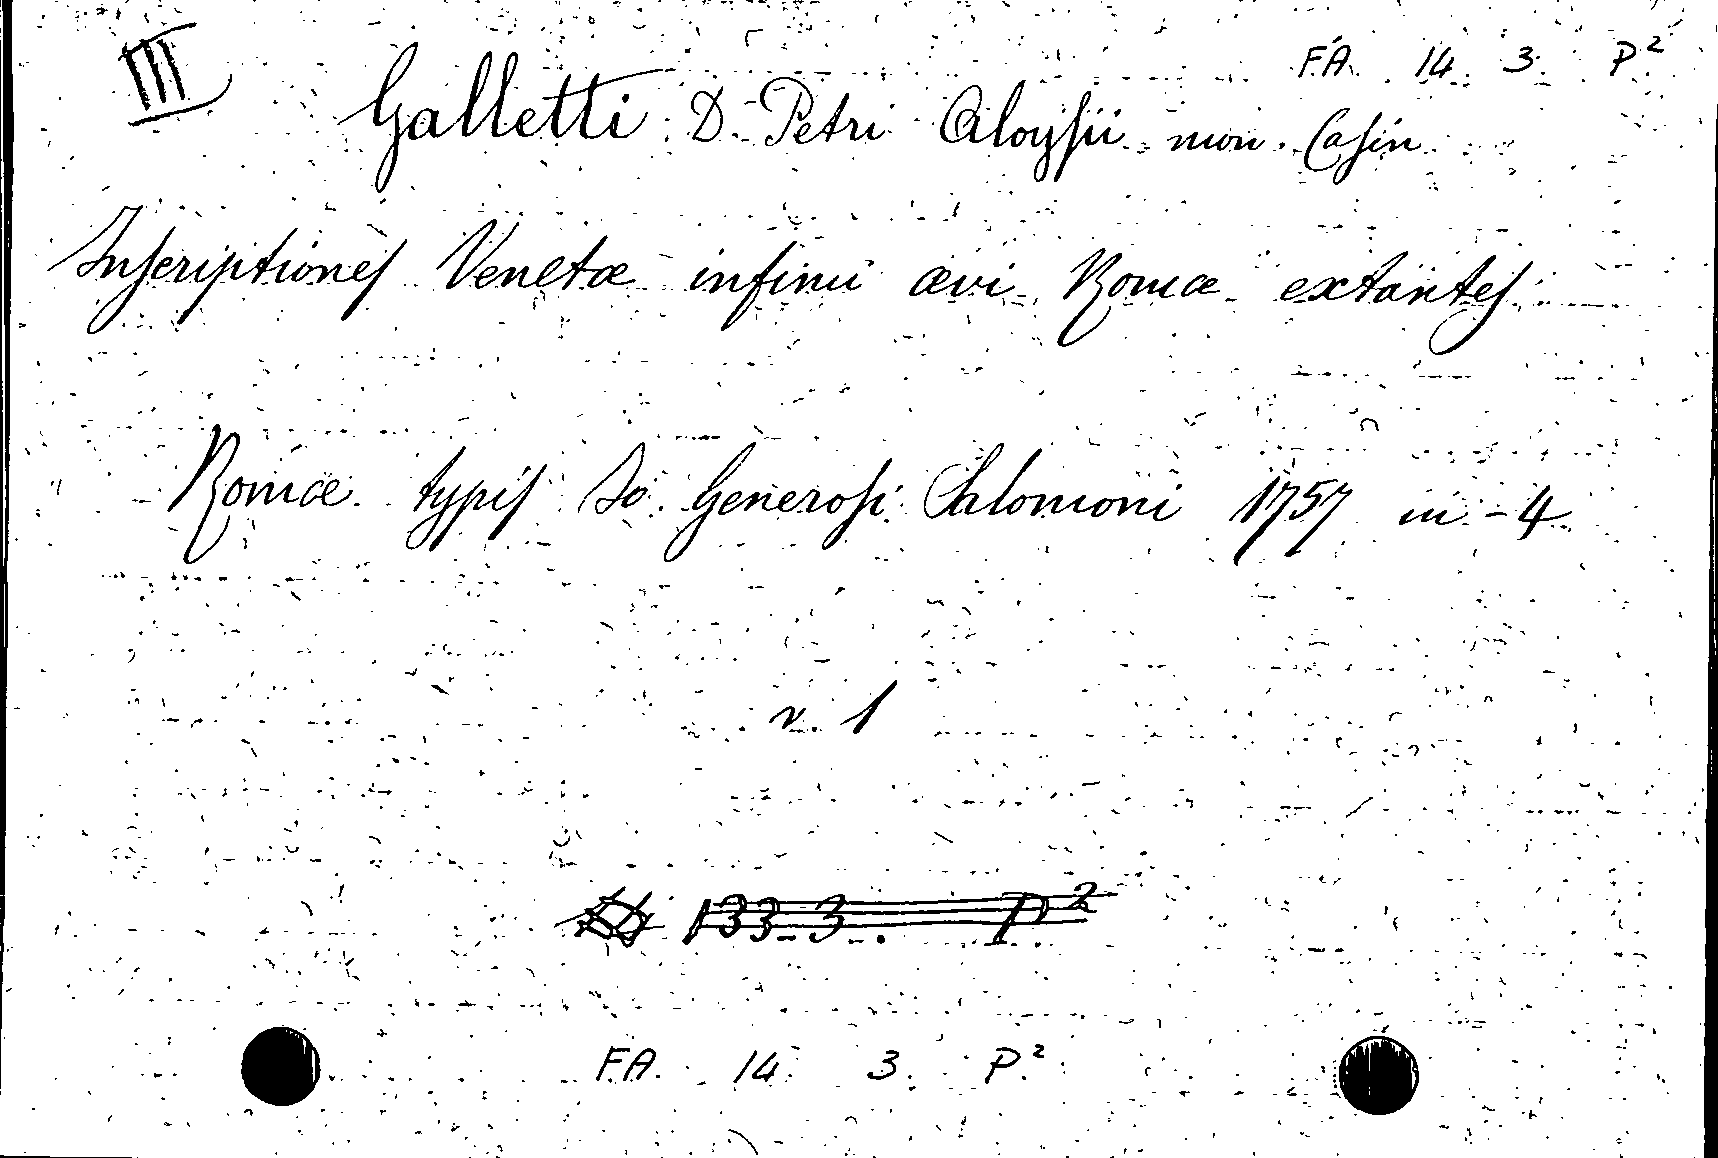 III
F.A. 14 3 P²
Galletti D. Petri Aloysii mon. Casin
Inscriptiones Venetæ infimi ævi Romæ extantes
Romæ typis Io. Generosi Salomoni 1757 in-4
v. 1
133.3. P²
F.A. 14 3. P²